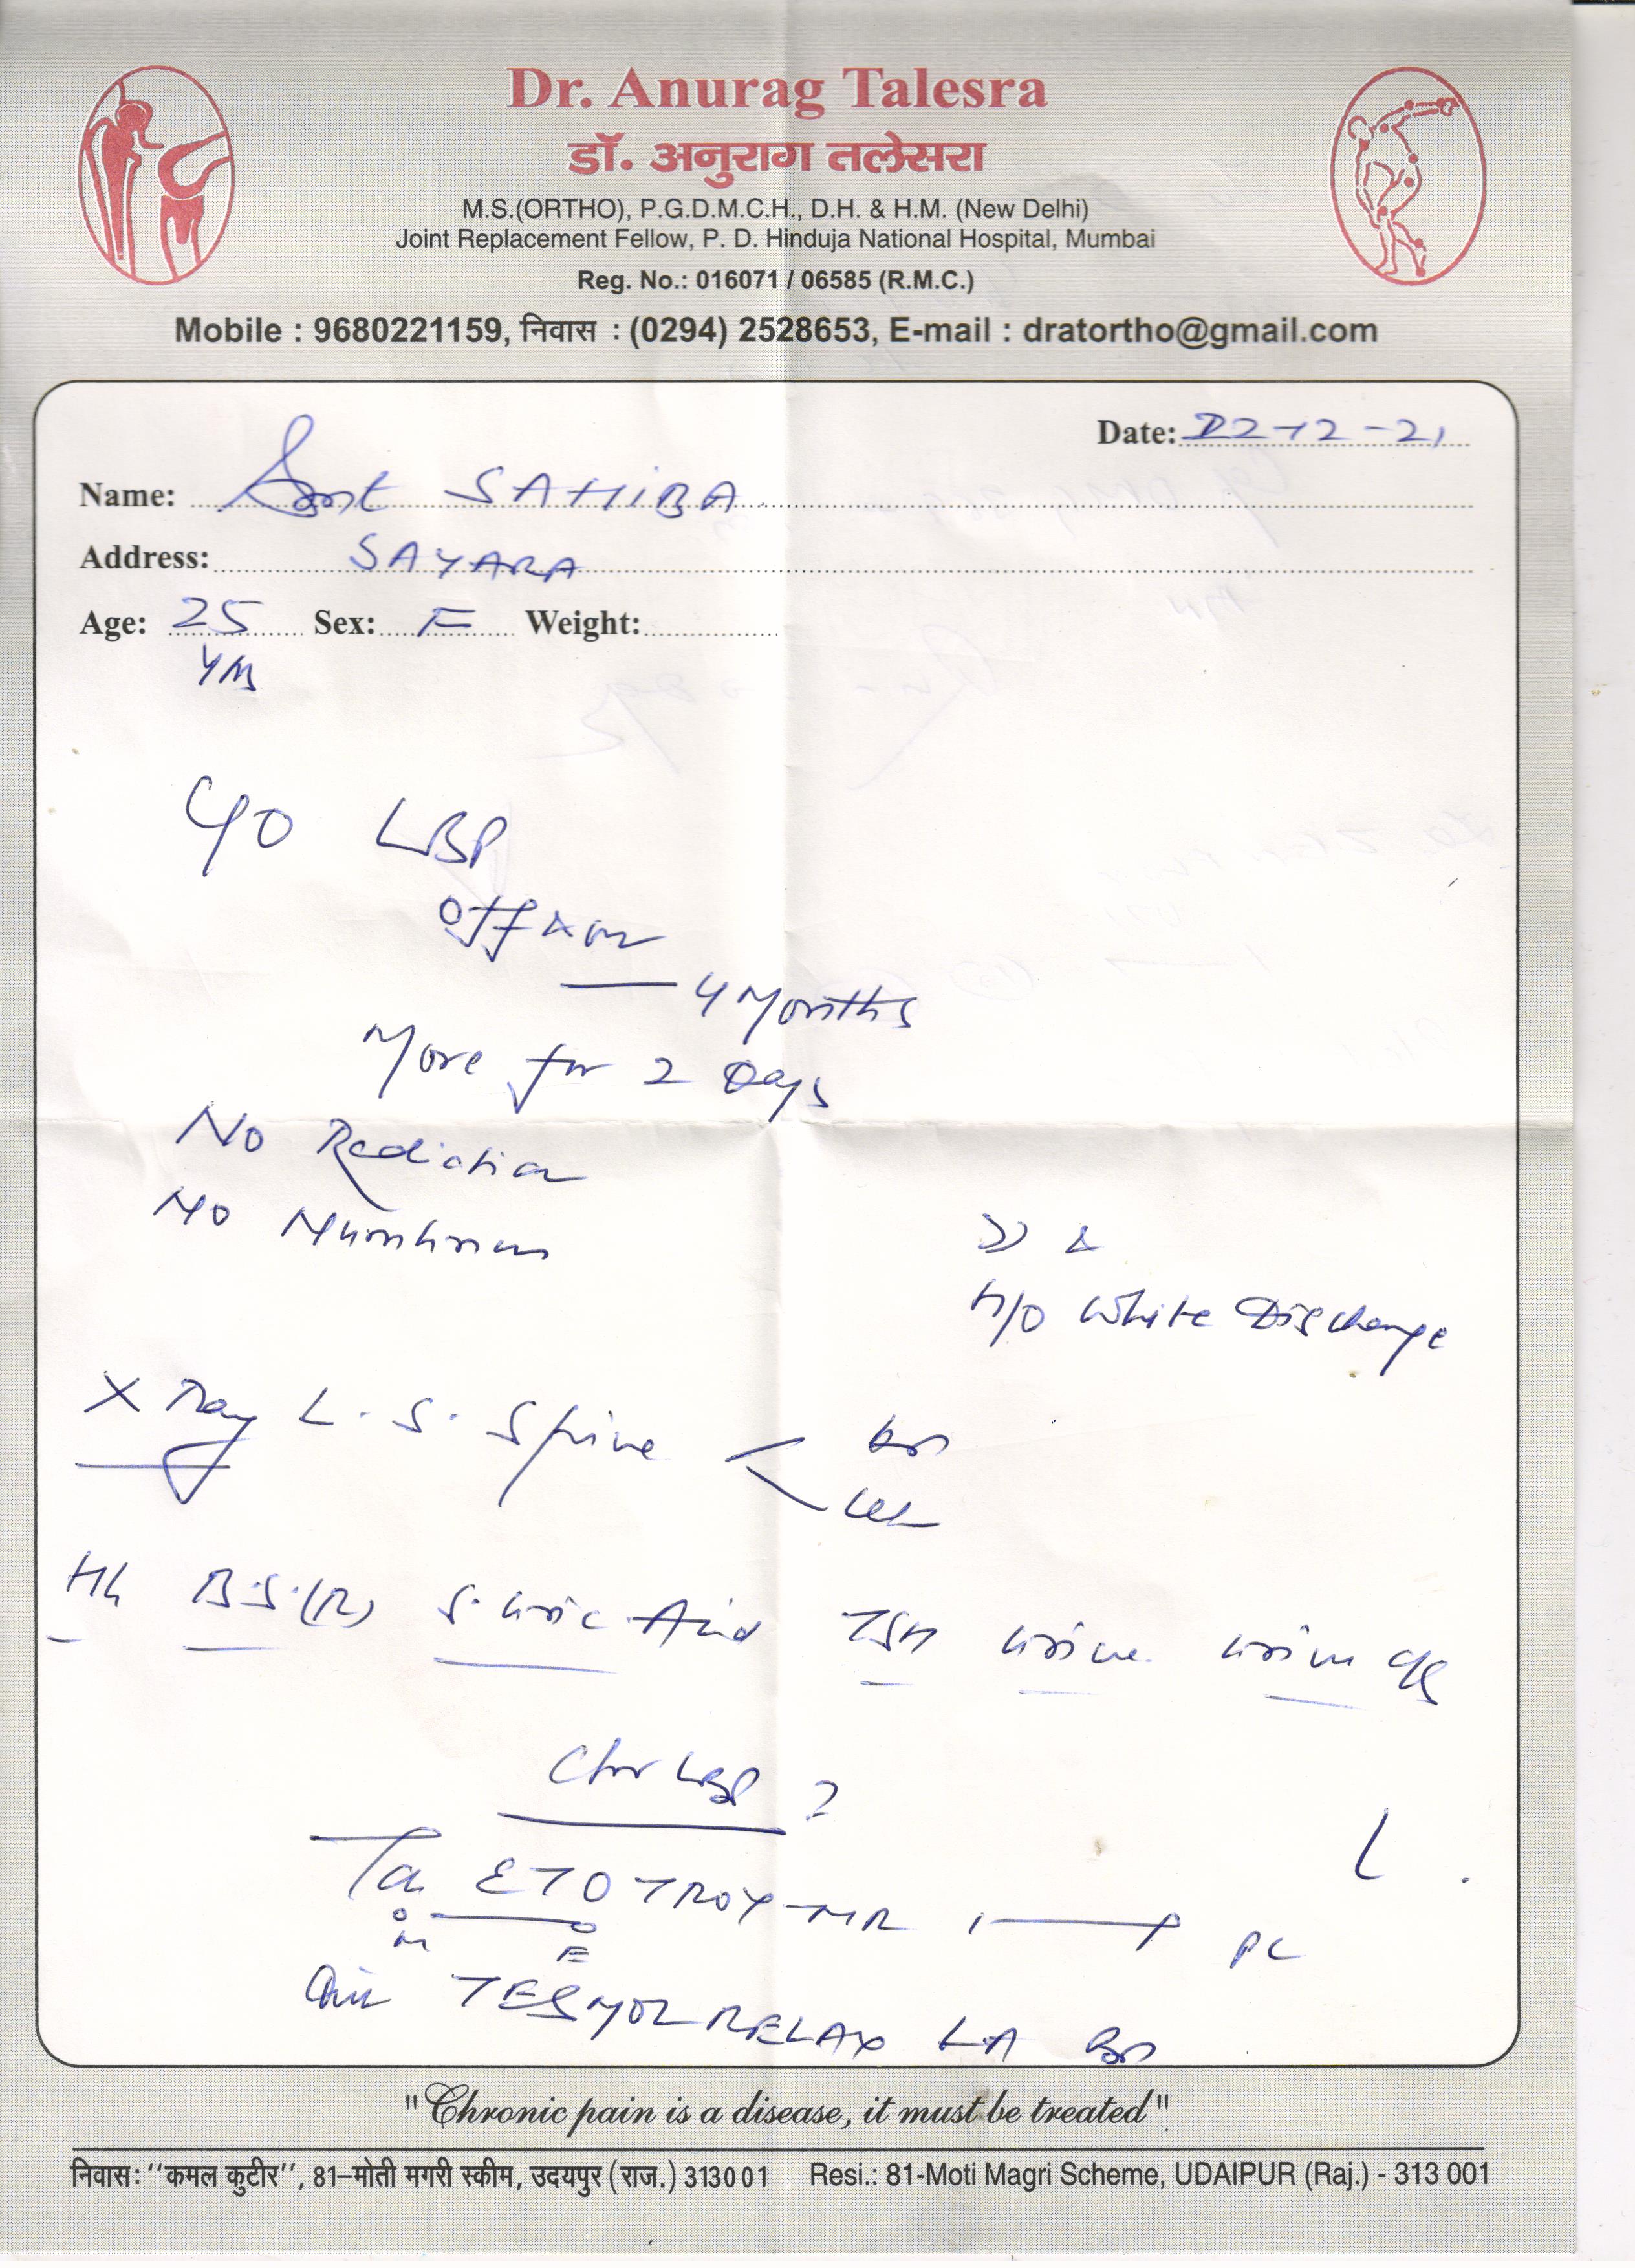 Dr. Anurag Talesra
डॉ. अनुराग तलेसरा
M.S.(ORTHO), P.G.D.M.C.H., D.H. & H.M. (New Delhi)
Joint Replacement Fellow, P. D. Hinduja National Hospital, Mumbai
Reg. No.: 016071 / 06585 (R.M.C.)
Mobile : 9680221159, निवास : (0294) 2528653, E-mail : dratortho@gmail.com
Date: 22-12-21
Name: Smt SAHIBA
Address: SAYARA
Age: 25 Sex: F Weight:
Yrs
C/O LBP
off & on
4 Months
More for 2 Days
No Radiation
No Numbness
H/O White Discharge
X Ray L.S. Spine
Hb B.S.(R) S. Uric Acid TSH Urine Urine C/S
Chr LBP ?
Ta ETOTROY-MR 1 PC
M E
TESMOL RELAX LA
"Chronic pain is a disease, it must be treated"
निवास: ‘‘कमल कुटीर’’, 81–मोती मगरी स्कीम, उदयपुर (राज.) 313001 Resi.: 81-Moti Magri Scheme, UDAIPUR (Raj.) - 313 001